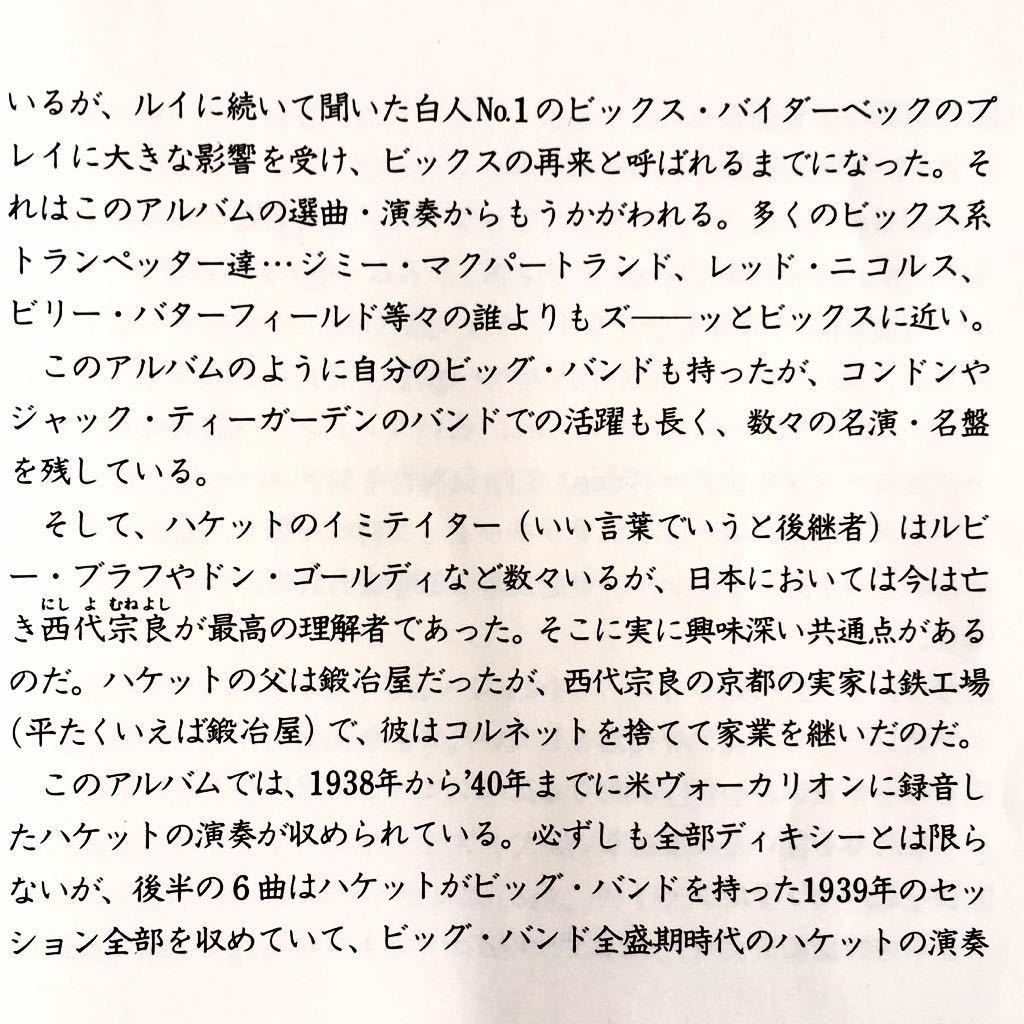 いるが、ルイに続いて聞いた白人No.1のビックス・バイダーベックのプ
レイに大きな影響を受け、ビックスの再来と呼ばれるまでになった。そ
れはこのアルバムの選曲・演奏からもうかがわれる。多くのビックス系
トランペッター達…ジミー・マクパートランド、レッド・ニコルス、
ビリー・バターフィールド等々の誰よりもズ――ッとビックスに近い。
このアルバムのように自分のビッグ・バンドも持ったが、コンドンや
ジャック・ティーガーデンのバンドでの活躍も長く、数々の名演・名盤
を残している。
そして、ハケットのイミテイター（いい言葉でいうと後継者）はルビ
ー・ブラフやドン・ゴールディなど数々いるが、日本においては今は亡
にし よ むねよし
き西代宗良が最高の理解者であった。そこに実に興味深い共通点がある
のだ。ハケットの父は鍛冶屋だったが、西代宗良の京都の実家は鉄工場
（平たくいえば鍛冶屋）で、彼はコルネットを捨てて家業を継いだのだ。
このアルバムでは、1938年から’40年までに米ヴォーカリオンに録音し
たハケットの演奏が収められている。必ずしも全部ディキシーとは限ら
ないが、後半の６曲はハケットがビッグ・バンドを持った1939年のセッ
ション全部を収めていて、ビッグ・バンド全盛期時代のハケットの演奏